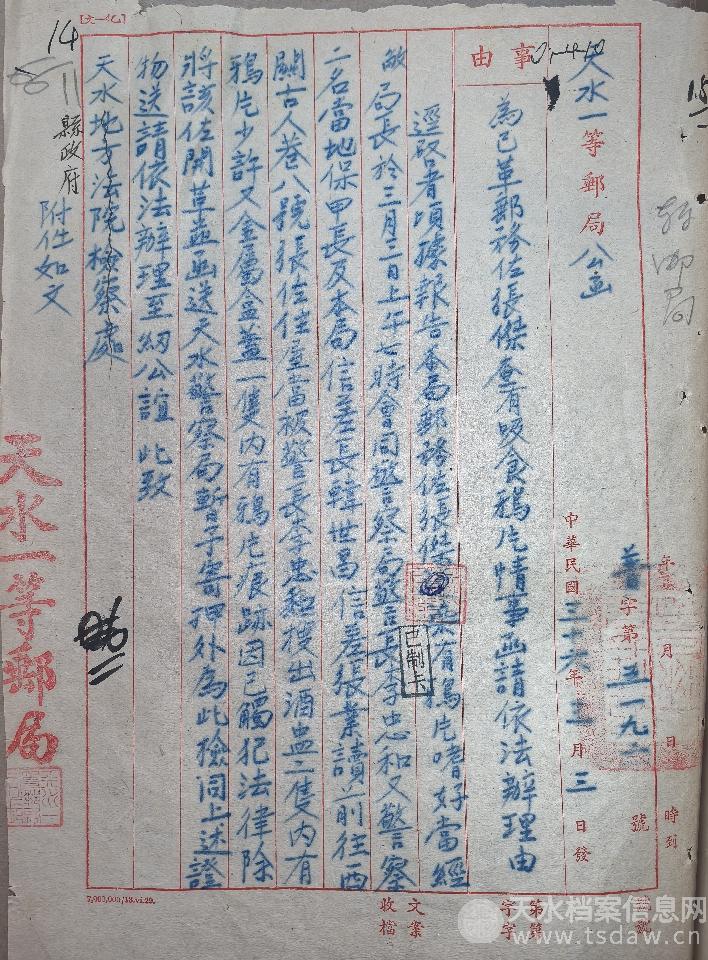 天水一等郵局公函
年 月 日 時到
普字第五一九二號
中華民國三十六年三月三日發
事由
為已革郵務佐張傑查有吸食鴉片情事函請依法辦理由
逕啓者頃據報告本局郵務佐張傑染有鴉片嗜好當經
敝局長於三月三日上午七時會同警察局警長李忠和又警察
二名當地保甲長及本局信差長韓世昌信差張業讀前往西
關古人巷八號張佐住屋當被警長李忠和搜出酒盅二隻內有
鴉片少許又金屬盒蓋一隻內有鴉片痕跡因已觸犯法律除
將該佐開革並函送天水警察局暫予寄押外為此檢同上述證
物送請依法辦理至紉公誼 此致
天水地方法院檢察處
縣政府 附件如文
天水一等郵局
已制卡
14
11
15
郵局
7,000,000/13.vi.29.
收文
檔案
字第 號
字第 號
天水档案信息网
www.tsdaw.cn